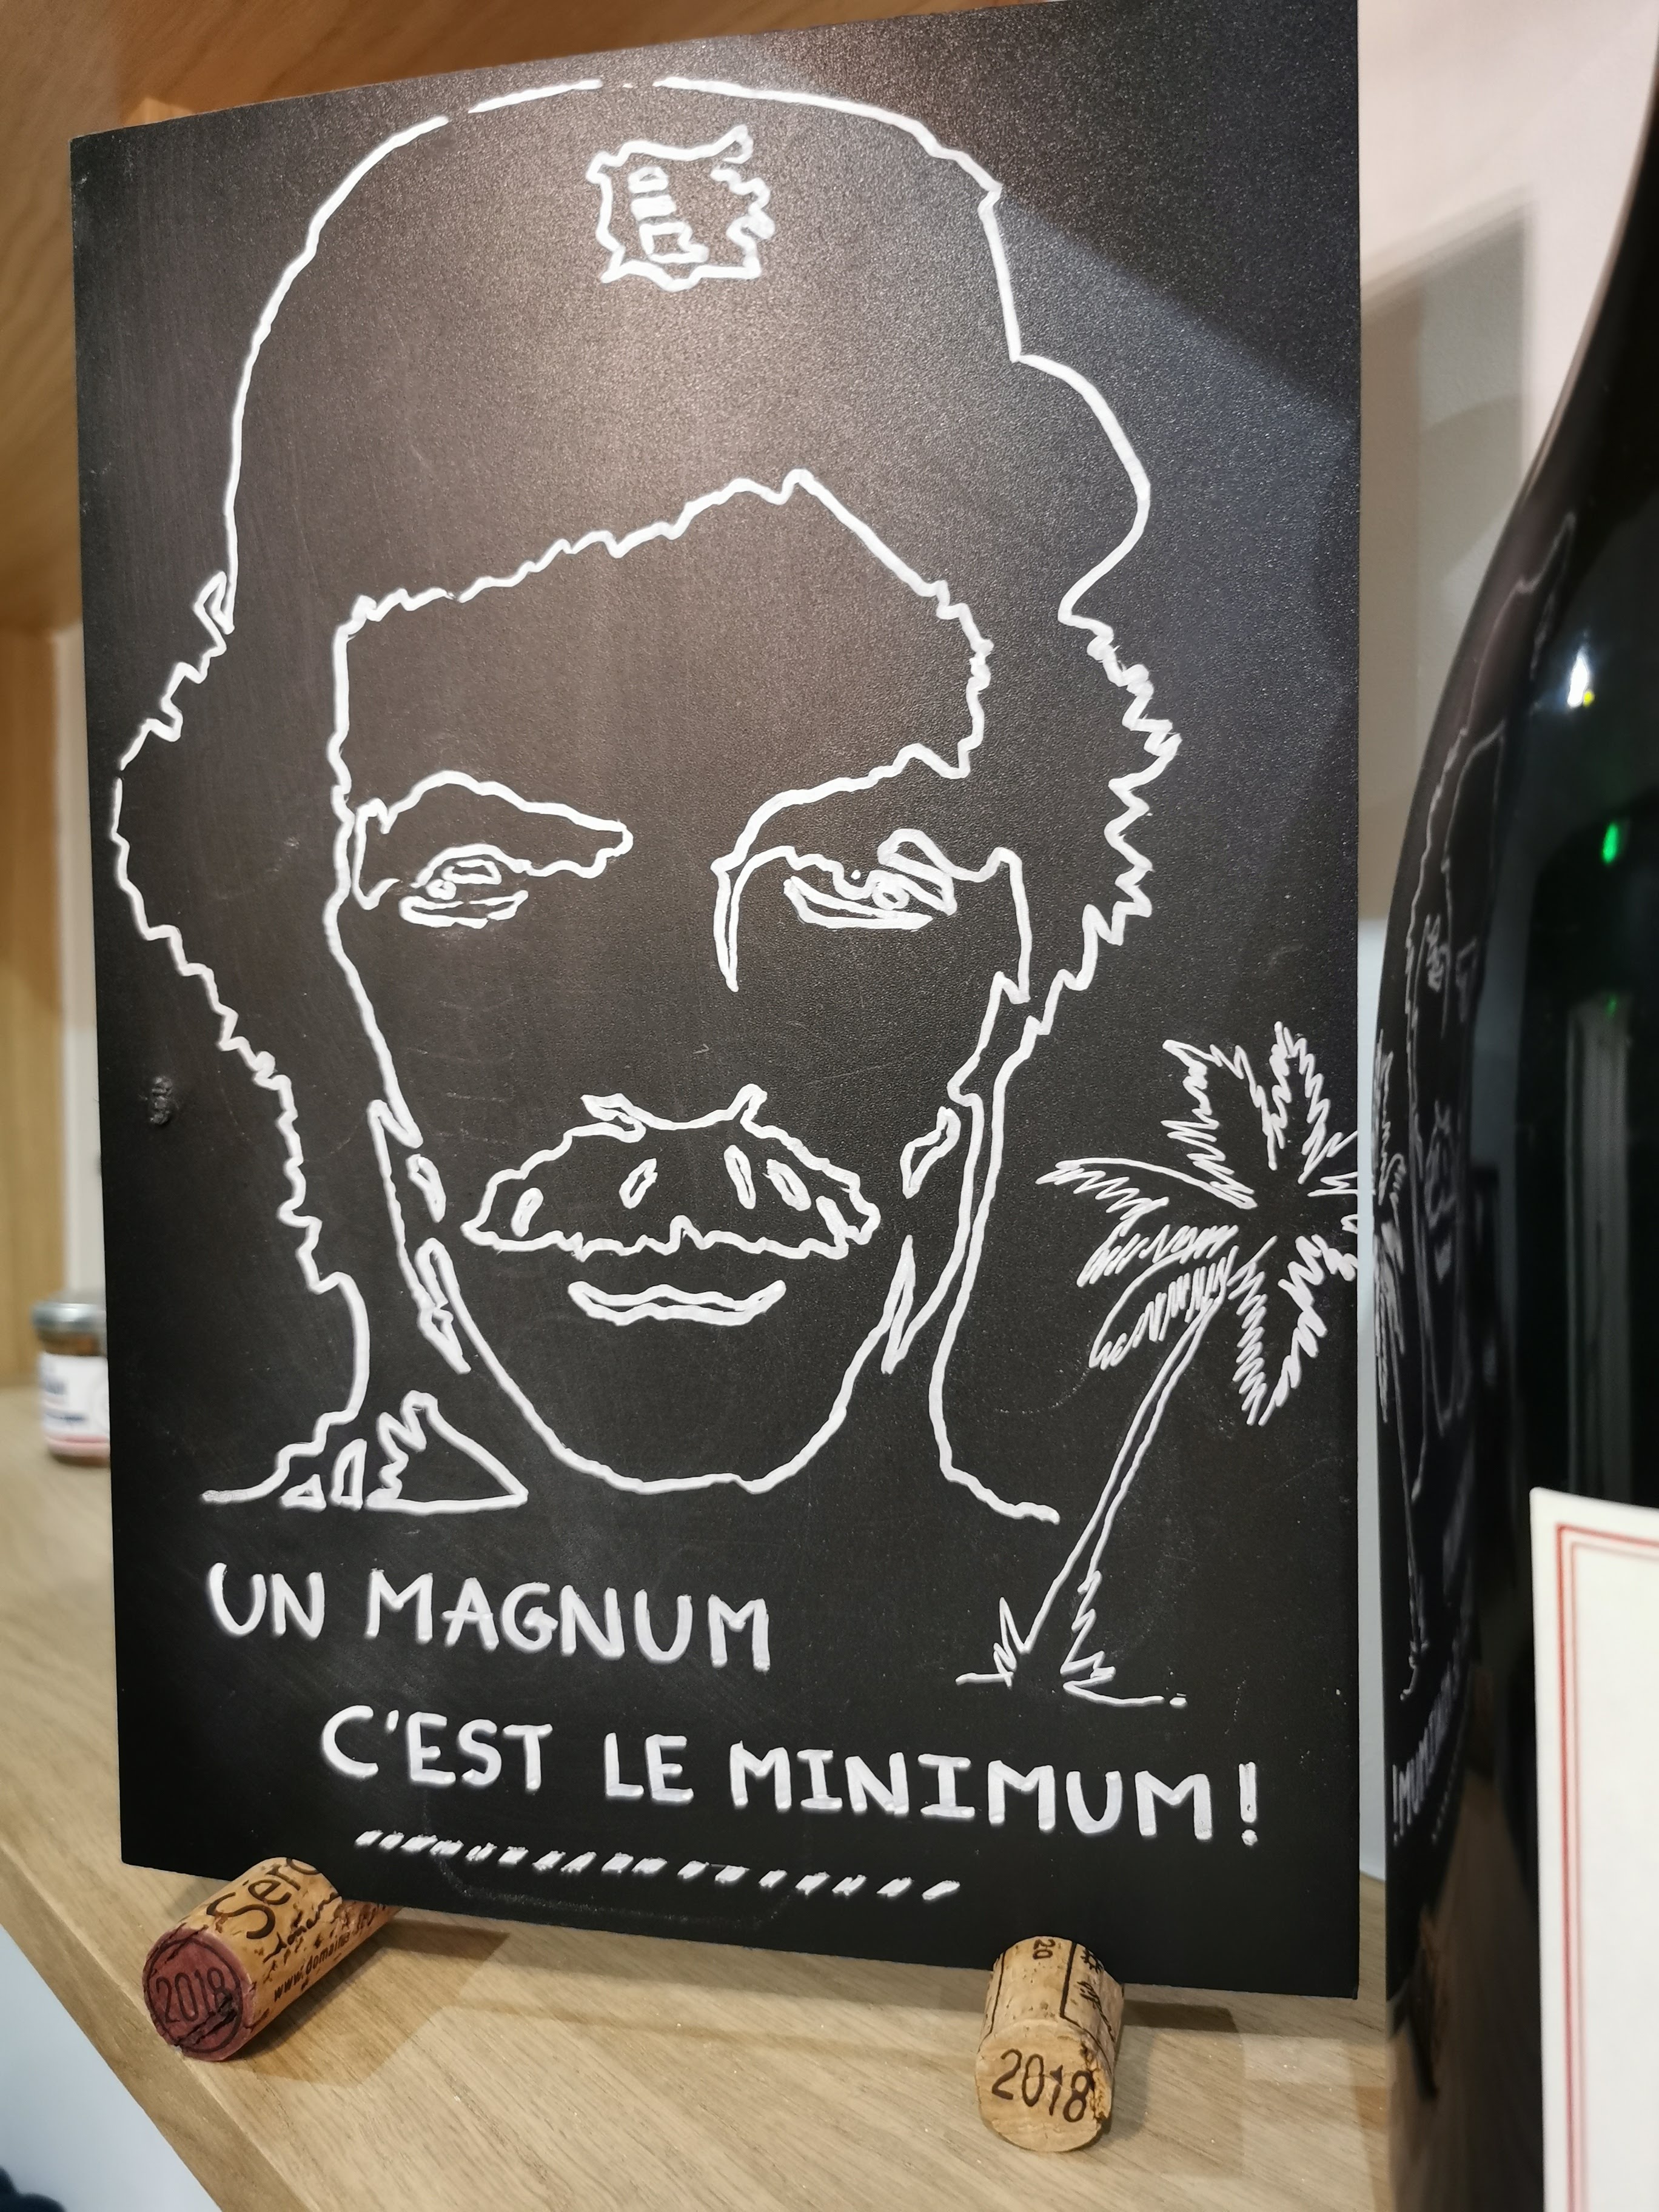 UN MAGNUM
C'EST LE MINIMUM!
2018
www.domaine
20
2018